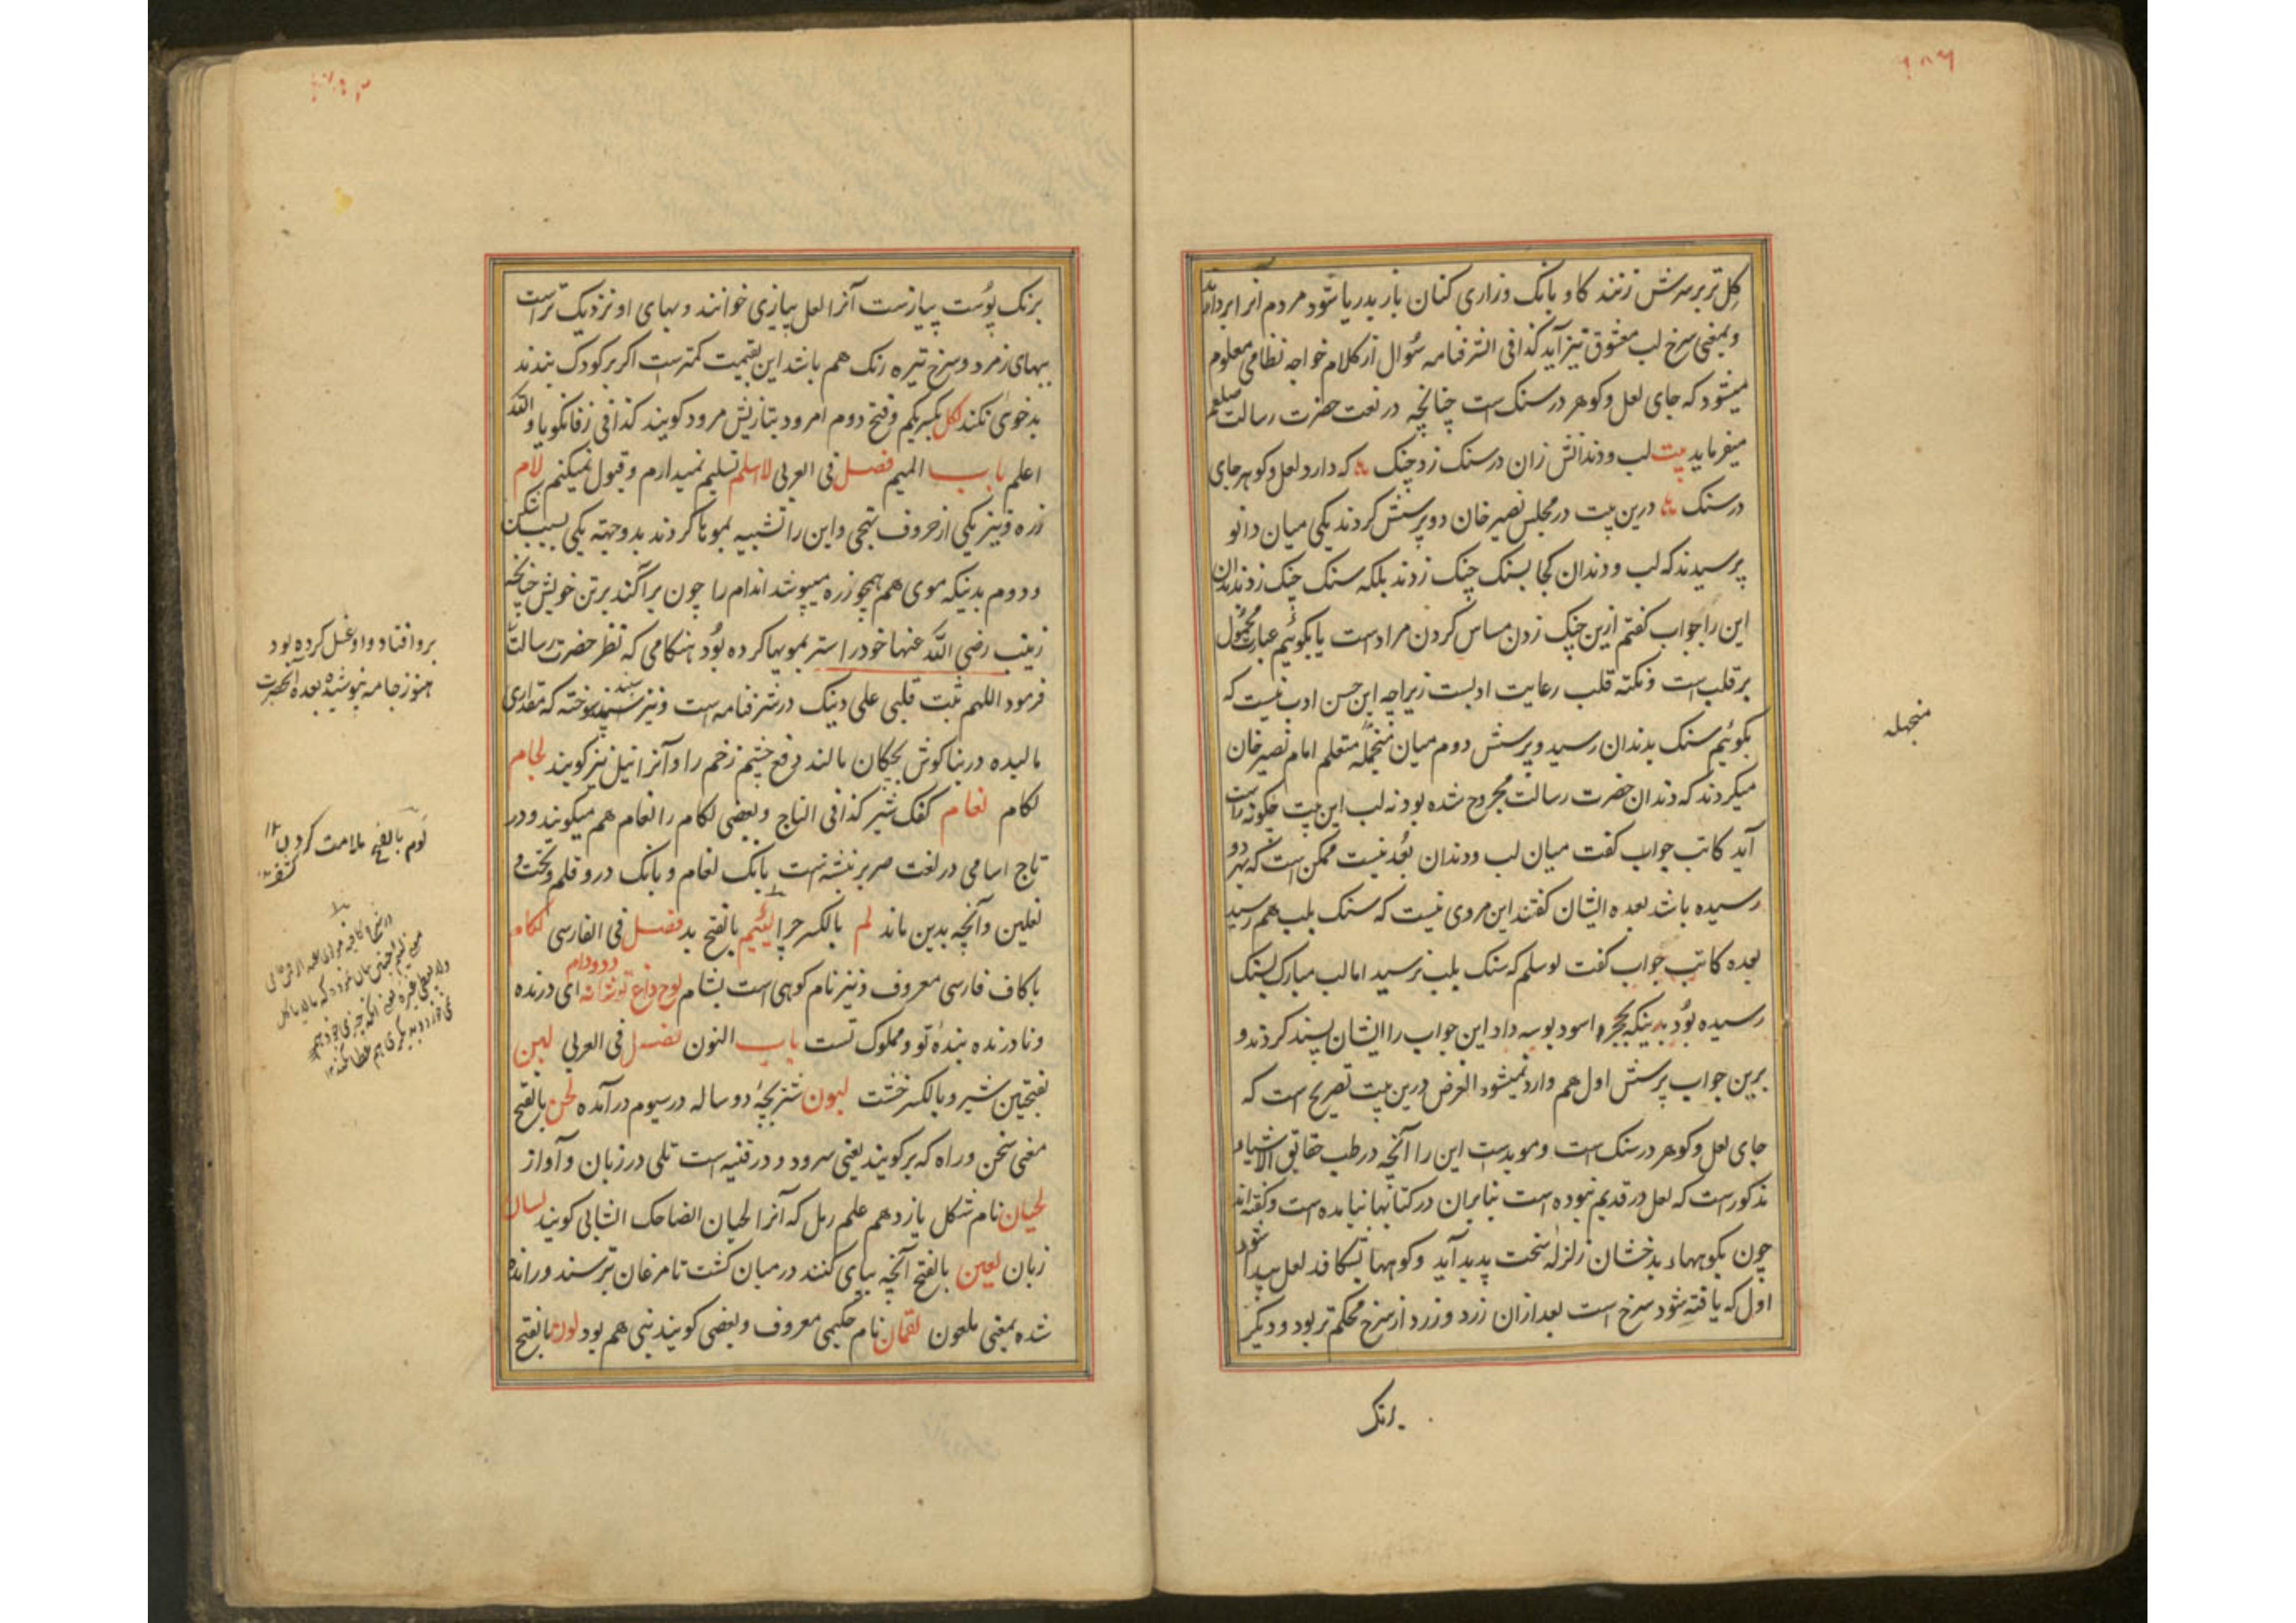 کل تر بر سرش زنند کاو بانک وزاری کنان باز بدریا شود مردم آنرا بردارند
وبمعنی سرخ لب معشوق نیز آید کذا فی الشرفنامه سؤال از کلام خواجه نظامی معلوم
میشود که جای لعل وکوهر در سنک است چنانچه در نعت حضرت رسالت صلعم
میفرماید بیت لب ودندانش زان در سنک زد چنک که دارد لعل وکوهر جای
در سنک درین بیت در مجلس نصیر خان دو پرسش کردند یکی میان دانو
پرسیدند که لب ودندان کجا بسنک چنک زدند بلکه سنک چنک زد بدندان
این را جواب کفتم ازین چنک زدن مساس کردن مراد است یا بکوئیم عبارت محمول
بر قلب است ونکته قلب رعایت ادبست زیراچه این حسن ادب نیست که
بکوئیم سنک بدندان رسید وپرسش دوم میان منجمله متعلم امام نصیر خان
میکردند که دندان حضرت رسالت مجروح شده بود نه لب این بیت چکونه راست
آید کاتب جواب کفت میان لب ودندان بعد نیست ممکن است که بهر دو
رسیده باشد بعده ایشان کفتند این مروی نیست که سنک بلب هم رسید
بعده کاتب جواب کفت لو سلم که سنک بلب نرسید اما لب مبارک بسنک
رسیده بود بدینکه بحجر اسود بوسه داد این جواب را ایشان پسند کردند و
برین جواب پرسش اول هم وارد نمیشود الغرض درین بیت تصریح است که
جای لعل وکوهر در سنک است ومویدست این را آنچه در طب حقایق الاشیاء
مذکورست که لعل در قدیم نبوده است بنابران در کتابها نیامده است وکفته اند
چون بکوههاء بدخشان زلزله سخت پدید آید وکوهها بشکافد لعل پیدا شود
اول که یافته شود سرخ است بعد ازان زرد وزرد از سرخ محکم تر بود ودیکر
برنک
منجمله
برنک پوست پیازست آنرا لعل پیازی خوانند وبهای او نزدیک تر است
ببهای زمرد وسرخ تیره رنک هم باشد این بقیمت کمترست اکر بر کودک بندند
بدخوی نکند لکل بکسر یکم وفتح دوم امرود بتازیش مرود کویند کذا فی زفانکویا والله
اعلم باب المیم فصل فی العربی لا سلم تسلیم نمیدارم وقبول نمیکنم لام
زره ونیز یکی از حروف تهجی واین را تشبیه بمویها کردند بدو جهته یکی بسبب شکن
ودوم بدینکه موی هم همچو زره میپوشد اندام را چون پراکند بر تن خویش چنانچه
زینب رضی الله عنها خود را ستر بمویها کرده بود هنکامی که نظر حضرت رسالت
فرمود اللهم ثبت قلبی علی دینک در شرفنامه است ونیز سپند سوخته که مقداری
مالیده در بناکوش بچکان مالند دفع چشم زخم را وآنرا نیل نیز کویند لجام
لکام لغام کفک شیر کذا فی التاج وبعضی لکام را لغام هم میکویند ودر
تاج اسامی در لغت صریر نبشته است بانک لغام وبانک در وقلم وتخت و
نعلین وآنچه بدین ماند لم بالکسر چرا لئیم بالفتح بد فصل فی الفارسی لکام
باکاف فارسی معروف ونیز نام کوهی است بشام لوح داغ تو شد دد ودام ای درنده
ونادرنده بندهٔ تو ومملوک تست باب النون فصل فی العربی لبن
بفتحتین شیر وبالکسر خشت لبون شتر بچهٔ دو ساله در سیوم در آمده لحن بالفتح
معنی سخن وراه که بر کویند یعنی سرود ودر قنیه است تلی در زبان وآواز
لحیان نام شکل یازدهم علم رمل که آنرا لحیان الضاحک الشابی کویند لسان
زبان لعین بالفتح آنچه بپای کنند در میان کشت تا مرغان ترسند ورانده
شده بمعنی ملعون لقمان نام حکیمی معروف وبعضی کویند نبی هم بود لون بالفتح
برو افتاد واو غسل کرده بود
هنوز جامه نپوشیده بعده آنحضرت
لوم بالفتح ملامت کردن ۱۲
کشف